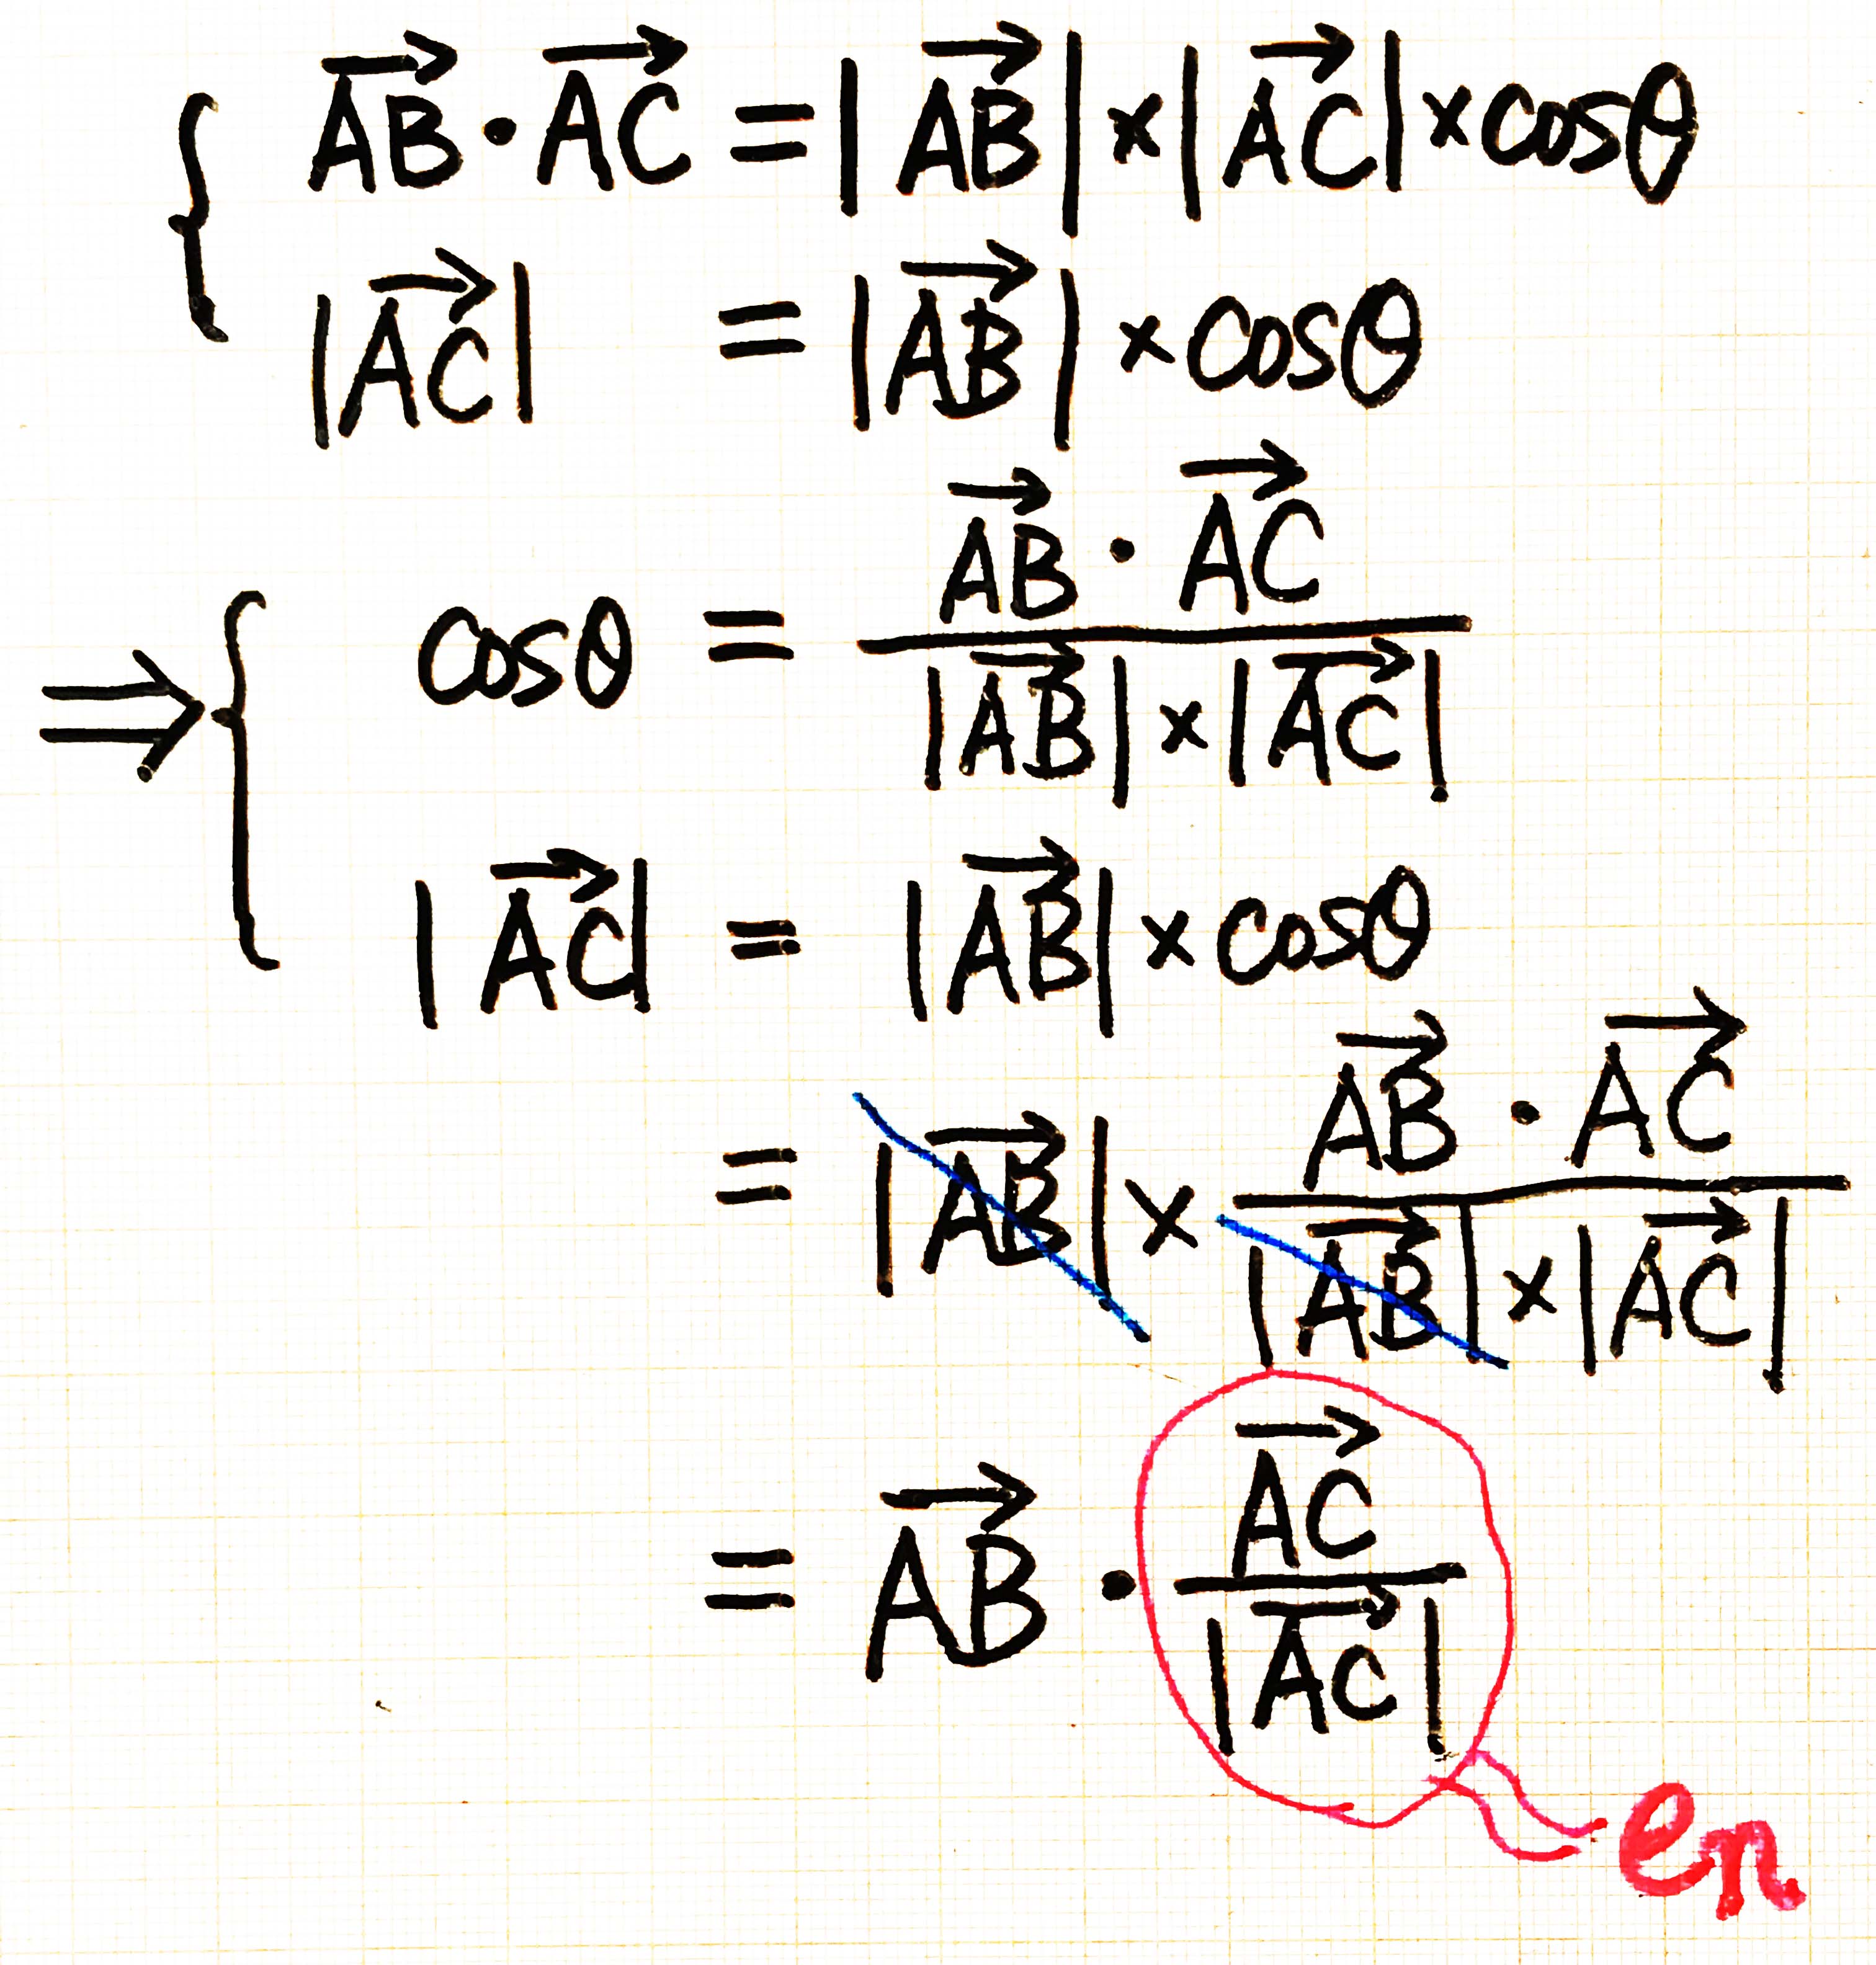 { $\overrightarrow{AB} \cdot \overrightarrow{AC} = |\overrightarrow{AB}| \times |\overrightarrow{AC}| \times \cos\theta$
$|\overrightarrow{AC}| = |\overrightarrow{AB}| \times \cos\theta$
$\Rightarrow$ { $\cos\theta = \frac{\overrightarrow{AB} \cdot \overrightarrow{AC}}{|\overrightarrow{AB}| \times |\overrightarrow{AC}|}$
$|\overrightarrow{AC}| = |\overrightarrow{AB}| \times \cos\theta$
$= |\overrightarrow{AB}| \times \frac{\overrightarrow{AB} \cdot \overrightarrow{AC}}{|\overrightarrow{AB}| \times |\overrightarrow{AC}|}$
$= \overrightarrow{AB} \cdot \frac{\overrightarrow{AC}}{|\overrightarrow{AC}|}$
en